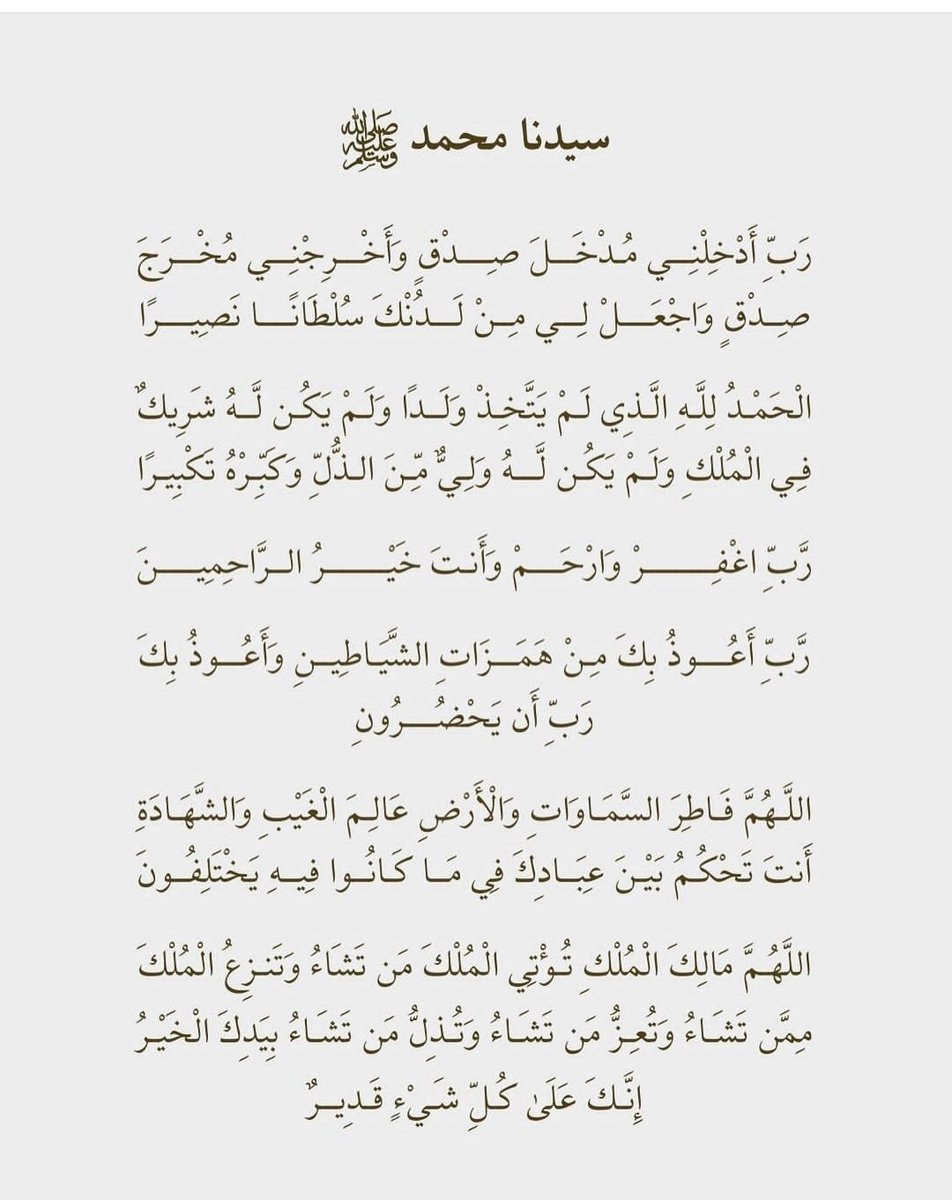 سيدنا محمد ﷺ
رَبِّ أَدْخِلْنِي مُدْخَلَ صِدْقٍ وَأَخْرِجْنِي مُخْرَجَ
صِدْقٍ وَاجْعَلْ لِي مِنْ لَدُنْكَ سُلْطَانًا نَصِيرًا
الْحَمْدُ لِلَّهِ الَّذِي لَمْ يَتَّخِذْ وَلَدًا وَلَمْ يَكُن لَّهُ شَرِيكٌ
فِي الْمُلْكِ وَلَمْ يَكُن لَّهُ وَلِيٌّ مِّنَ الذُّلِّ وَكَبِّرْهُ تَكْبِيرًا
رَّبِّ اغْفِرْ وَارْحَمْ وَأَنتَ خَيْرُ الرَّاحِمِينَ
رَّبِّ أَعُوذُ بِكَ مِنْ هَمَزَاتِ الشَّيَاطِينِ وَأَعُوذُ بِكَ
رَبِّ أَن يَحْضُرُونِ
اللَّهُمَّ فَاطِرَ السَّمَاوَاتِ وَالْأَرْضِ عَالِمَ الْغَيْبِ وَالشَّهَادَةِ
أَنتَ تَحْكُمُ بَيْنَ عِبَادِكَ فِي مَا كَانُوا فِيهِ يَخْتَلِفُونَ
اللَّهُمَّ مَالِكَ الْمُلْكِ تُؤْتِي الْمُلْكَ مَن تَشَاءُ وَتَنزِعُ الْمُلْكَ
مِمَّن تَشَاءُ وَتُعِزُّ مَن تَشَاءُ وَتُذِلُّ مَن تَشَاءُ بِيَدِكَ الْخَيْرُ
إِنَّكَ عَلَىٰ كُلِّ شَيْءٍ قَدِيرٌ